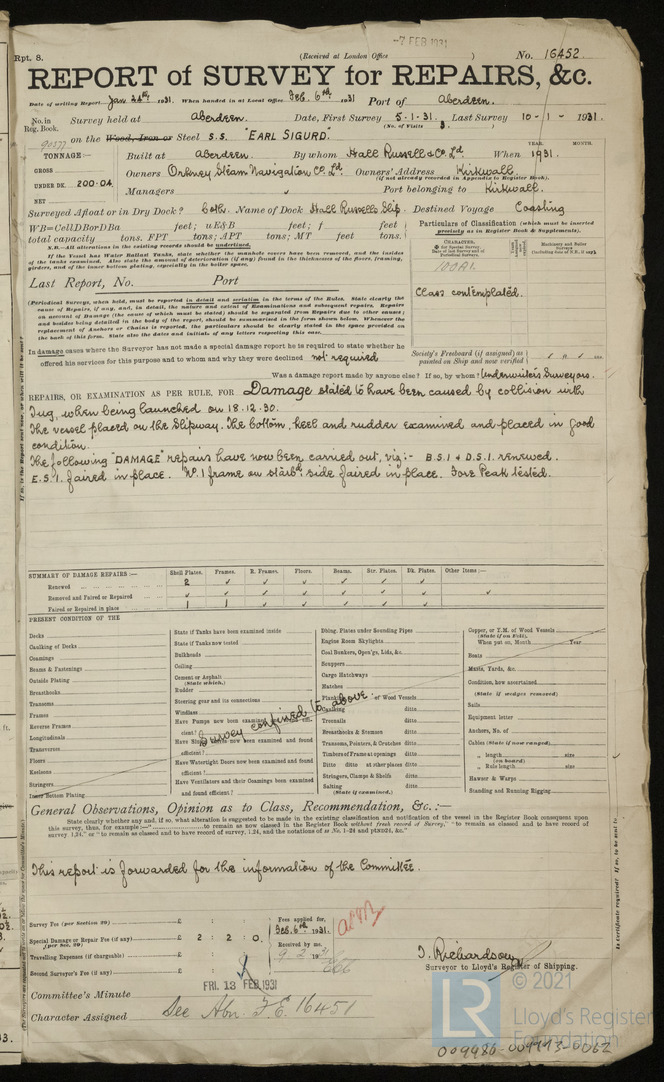 -7 FEB 1931
Rpt. 8.
(Received at London Office )
No. 16452.
REPORT of SURVEY for REPAIRS, &c.
Date of writing Report Jan 24th 1931. When handed in at Local Office Feb. 6th 1931 Port of Aberdeen.
No. in Reg. Book. Survey held at Aberdeen. Date, First Survey 5-1-31. Last Survey 10-1-1931.
(No. of Visits 3.)
90577 on the Wood, Iron or Steel S.S. "EARL SIGURD."
TONNAGE:- Built at Aberdeen. By whom Hall Russell & Co. Ld When 1931.
YEAR. MONTH.
GROSS
UNDER DK. 200.04
NET
Owners Orkney Steam Navigation Co. Ld. Owners' Address Kirkwall.
(if not already recorded in Appendix to Register Book).
Managers Port belonging to Kirkwall.
Surveyed Afloat or in Dry Dock? both. Name of Dock Hall Russell's Slip. Destined Voyage Coasting
WB=CellDBorDBa feet; uE&B feet; f feet
total capacity tons. FPT tons; APT tons; MT feet tons.
N.B.—All alterations in the existing records should be underlined.
If the Vessel has Water Ballast Tanks, state whether the manhole covers have been removed, and the insides of the tanks examined. Also state the amount of deterioration (if any) found in the thickness of the floors, framing, girders, and of the inner bottom plating, especially in the boiler space.
Particulars of Classification (which must be inserted precisely as in Register Book & Supplements).
CHARACTER.
100A1.
Class contemplated.
Last Report, No. Port
(Periodical Surveys, when held, must be reported in detail and seriatim in the terms of the Rules. State clearly the cause of Repairs, if any, and, in detail, the nature and extent of Examinations and subsequent repairs. Repairs on account of Damage (the cause of which must be stated) should be separated from Repairs due to other causes; and besides being detailed in the body of the report, should be summarised in the form shown below. Whenever the replacement of Anchors or Chains is reported, the particulars should be clearly stated in the space provided on the back of this form. State also the dates and initials of any letters respecting this case.
In damage cases where the Surveyor has not made a special damage report he is required to state whether he offered his services for this purpose and to whom and why they were declined not required
Society's Freeboard (if assigned) as painted on Ship and now verified
Was a damage report made by anyone else? If so, by whom? Underwriters Surveyors.
REPAIRS, OR EXAMINATION AS PER RULE, FOR Damage stated to have been caused by collision with
Tug, when being launched on 18.12.30.
The vessel placed on the Slipway. The bottom, keel and rudder examined and placed in good
condition.
The following "DAMAGE" repairs have now been carried out, viz:- B.S.1 & D.S.1. renewed.
E.S.1. faired in place. No. 1 frame on starbd. side faired in place. Fore Peak tested.
SUMMARY OF DAMAGE REPAIRS :— Shell Plates. Frames. R. Frames. Floors. Beams. Str. Plates. Dk. Plates. Other Items :—
Renewed 2
Removed and Faired or Repaired
Faired or Repaired in place 1 1
PRESENT CONDITION OF THE
Decks
Caulking of Decks
Coamings
Beams & Fastenings
Outside Plating
Breasthooks
Transoms
Frames
Reverse Frames
Longitudinals
Transverses
Floors
Keelsons
Stringers
Inner Bottom Plating
State if Tanks have been examined inside
State if Tanks now tested
Bulkheads
Ceiling
Cement or Asphalt
(State which.)
Rudder
Steering gear and its connections
Windlass
Have Pumps now been examined
cient?
efficient?
Have Watertight Doors now been examined and found
efficient?
Have Ventilators and their Coamings been examined
and found efficient?
Survey confined to above
Dblng. Plates under Sounding Pipes
Engine Room Skylights
Coal Bunkers, Open'gs, Lids, &c.
Scuppers
Cargo Hatchways
Hatches
of Wood Vessels
ditto
Treenails ditto
Breasthooks & Stemson ditto
Transoms, Pointers, & Crutches ditto
Timbers of Frame at openings ditto
Ditto ditto at other places ditto
Stringers, Clamps & Shelfs ditto
Salting ditto
(State if examined.)
Copper, or Y.M. of Wood Vessels
(State if on Felt).
When put on, Month Year
Boats
Masts, Yards, &c.
Condition, how ascertained
(State if wedges removed)
Sails
Equipment letter
Anchors, No. of
Cables (State if now ranged)
„ length size
(on board)
„ Rule length size
Hawser & Warps
Standing and Running Rigging
General Observations, Opinion as to Class, Recommendation, &c. :—
State clearly whether any and, if so, what alteration is suggested to be made in the existing classification and notification of the vessel in the Register Book consequent upon
This report is forwarded for the information of the Committee.
Survey Fee (per Section 29) £ : :
Special Damage or Repair Fee (if any) £ 2 : 2 : 0.
(per Sec. 29)
Travelling Expenses (if chargeable) £ : :
Second Surveyor's Fee (if any) £ : :
Fees applied for,
Feb. 6th 1931.
Received by me,
9 2 1931
J. Richardson
Surveyor to Lloyd's Register of Shipping.
FRI. 13 FEB 1931
Committee's Minute
Character Assigned See Abn. F.E. 16451
© 2021
LR
Lloyd's Register
Foundation
009486-009493-0062